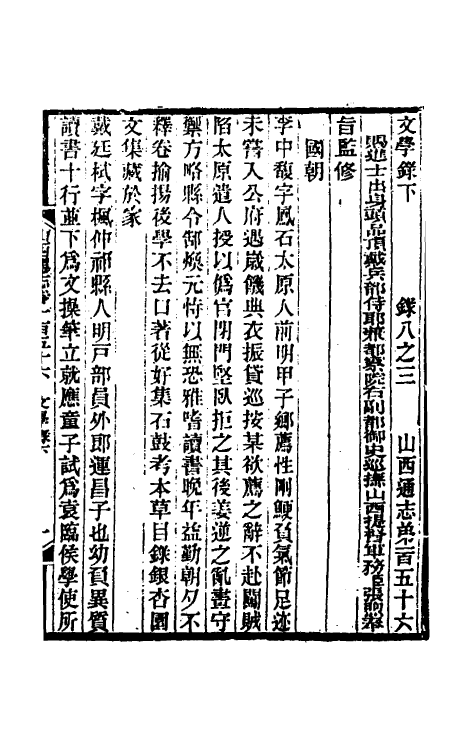 文學錄下　錄八之三　山西通志第一百五十六
賜進士出身頭品頂戴兵部侍郎兼都察院右副都御史巡撫山西提督軍務臣張煦奉
旨監修
國朝
李中馥字鳳石太原人前明甲子鄉薦性剛鯁負氣節足迹
未嘗入公府遇歲饑典衣振貸巡按某欲薦之辭不赴闖賊
陷太原遣人授以僞官閉門堅臥拒之其後姜逆之亂晝守
禦方略縣令郜煥元恃以無恐雅嗜讀書晚年益勤朝夕不
釋卷揄揚後學不去口著從好集石鼓考本草目錄銀杏園
文集藏於家
戴廷栻字楓仲祁縣人明戸部員外郎運昌子也幼負異質
讀書十行並下爲文操筆立就應童子試爲袁臨侯學使所
山西通志卷一百五十六　文學錄下　一